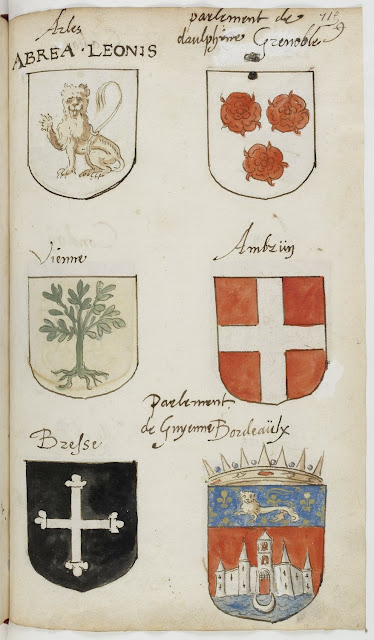 Arles
ABREA · LEONIS
parlement de
daulphine Grenoble
Vienne
Ambrun
Bresse
Parlement
de Guyenne Bordeaulx